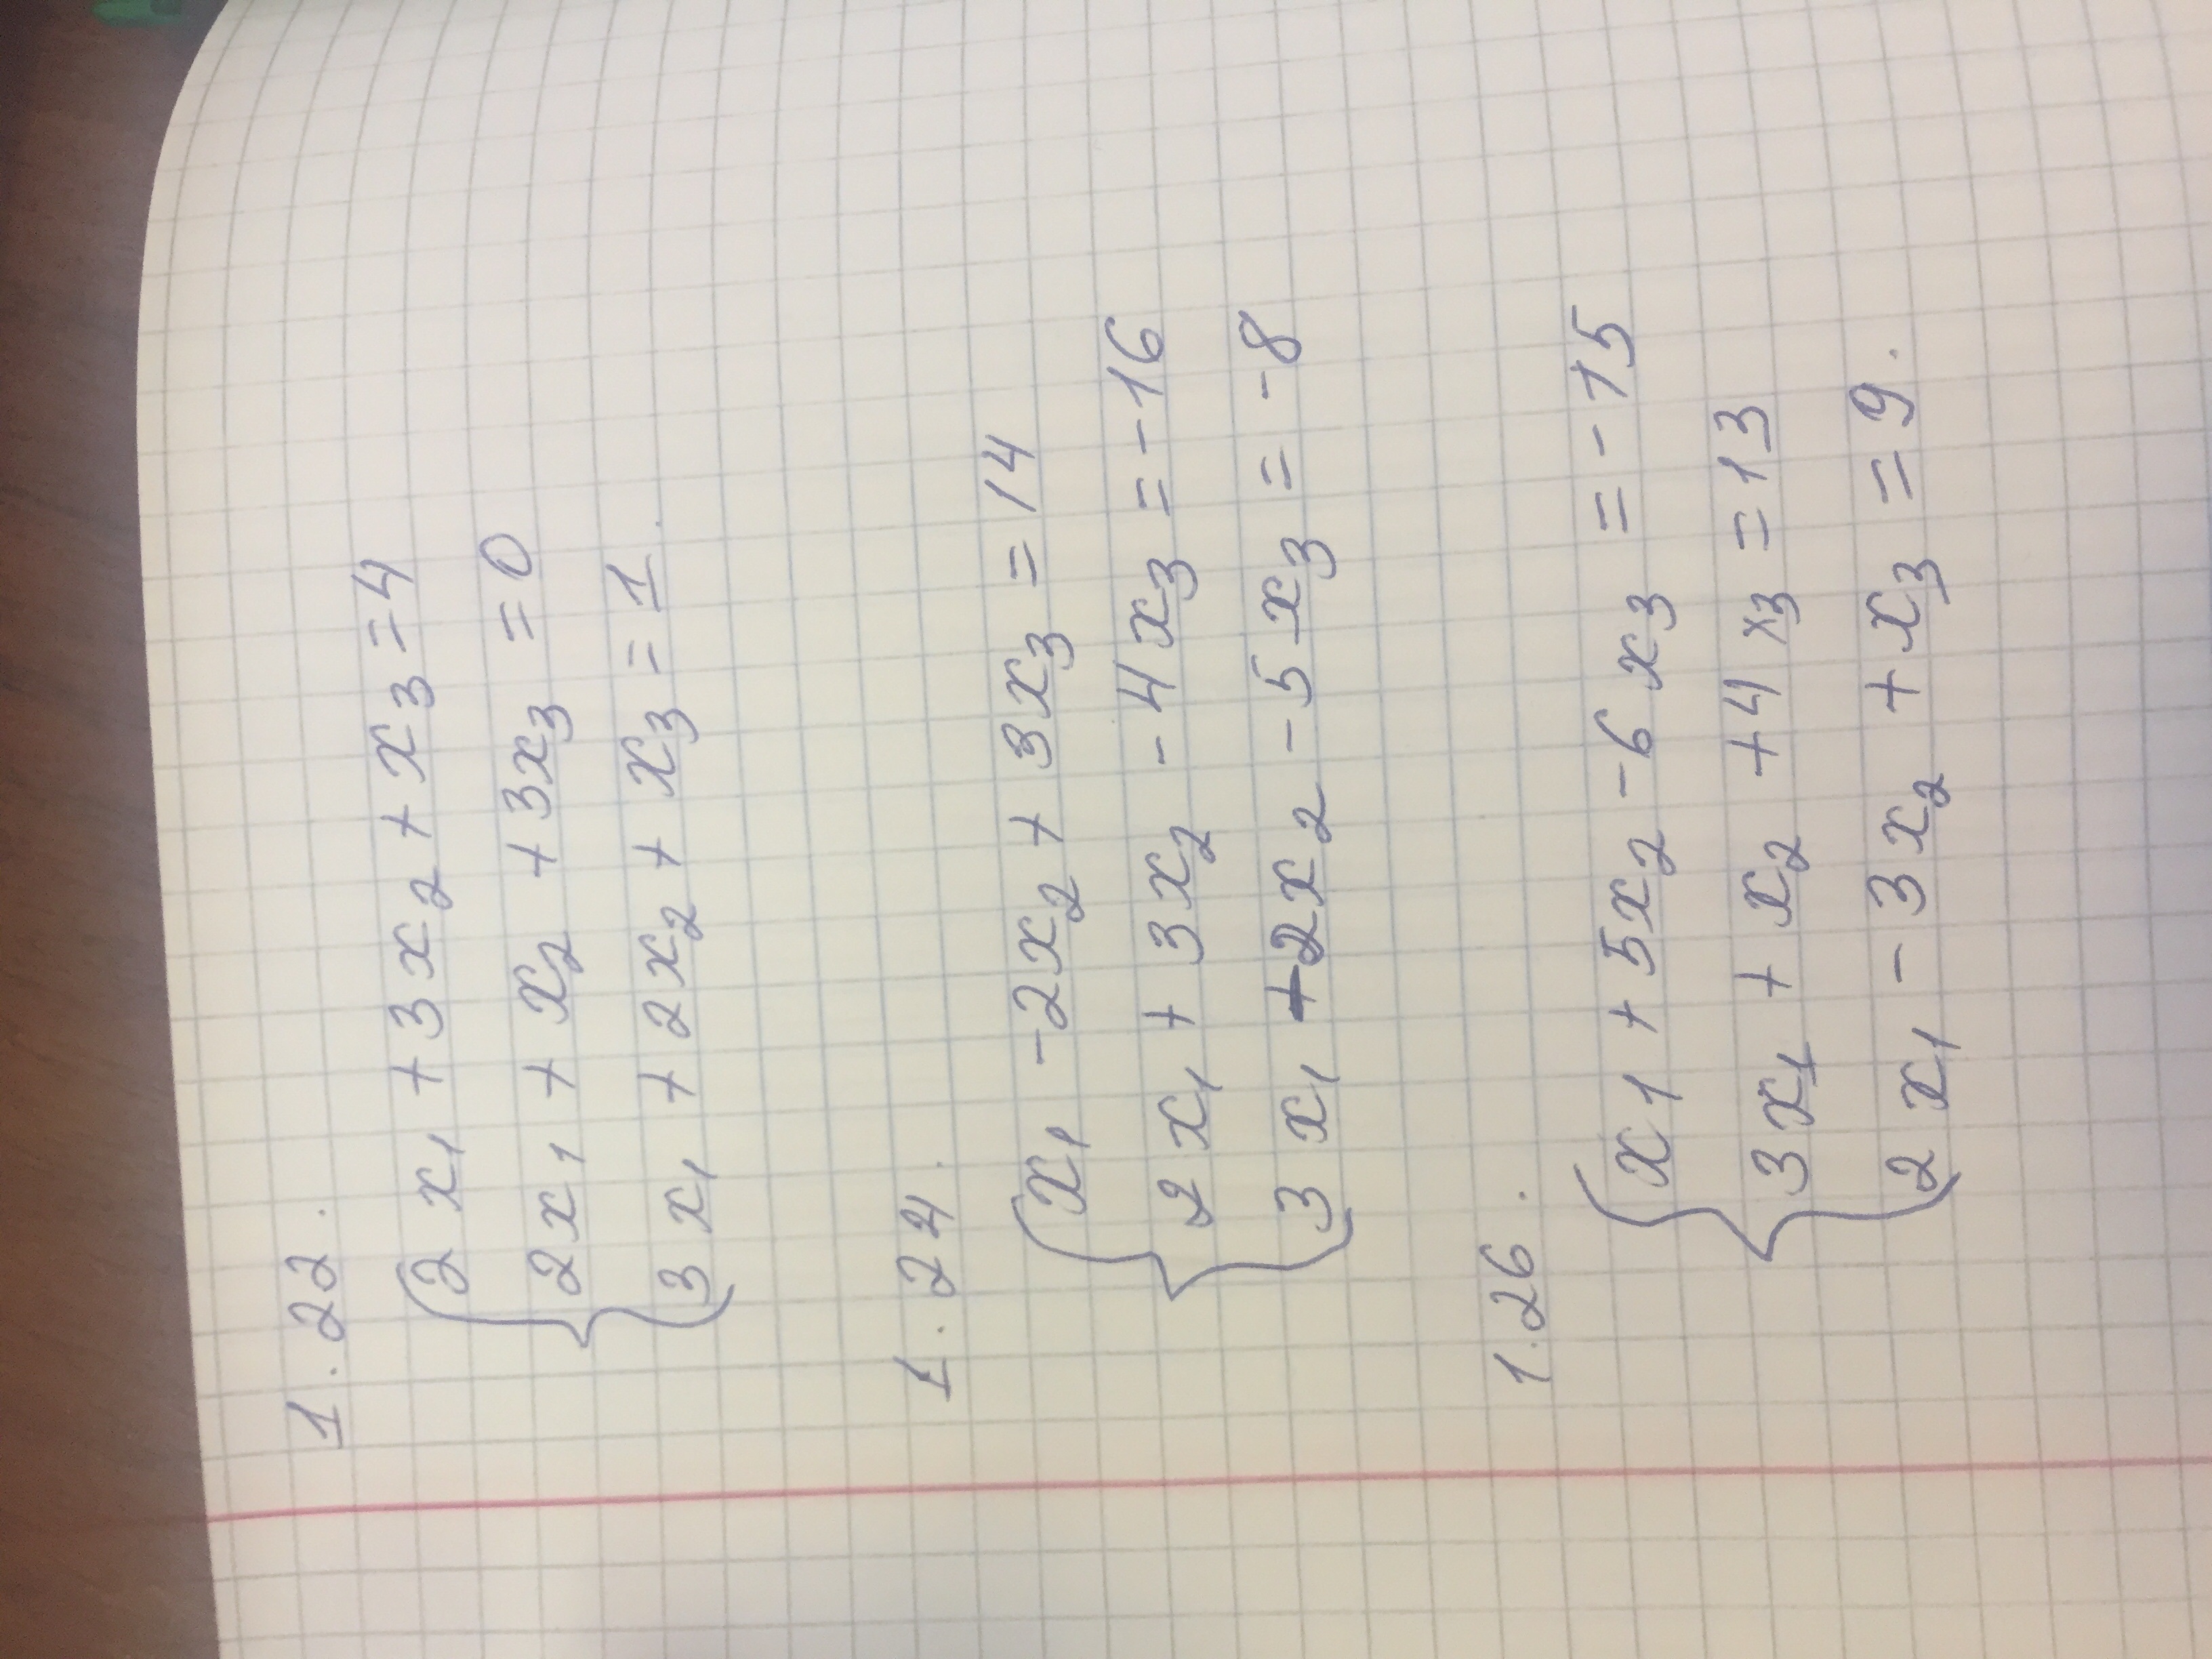 1.22.
2x₁ + 3x₂ + x₃ = 4
2x₁ + x₂ + 3x₃ = 0
3x₁ + 2x₂ + x₃ = 1.
1.24.
x₁ - 2x₂ + 3x₃ = 14
2x₁ + 3x₂ - 4x₃ = -16
3x₁ + 2x₂ - 5x₃ = -8
1.26.
x₁ + 5x₂ - 6x₃ = -15
3x₁ + x₂ + 4x₃ = 13
2x₁ - 3x₂ + x₃ = 9.